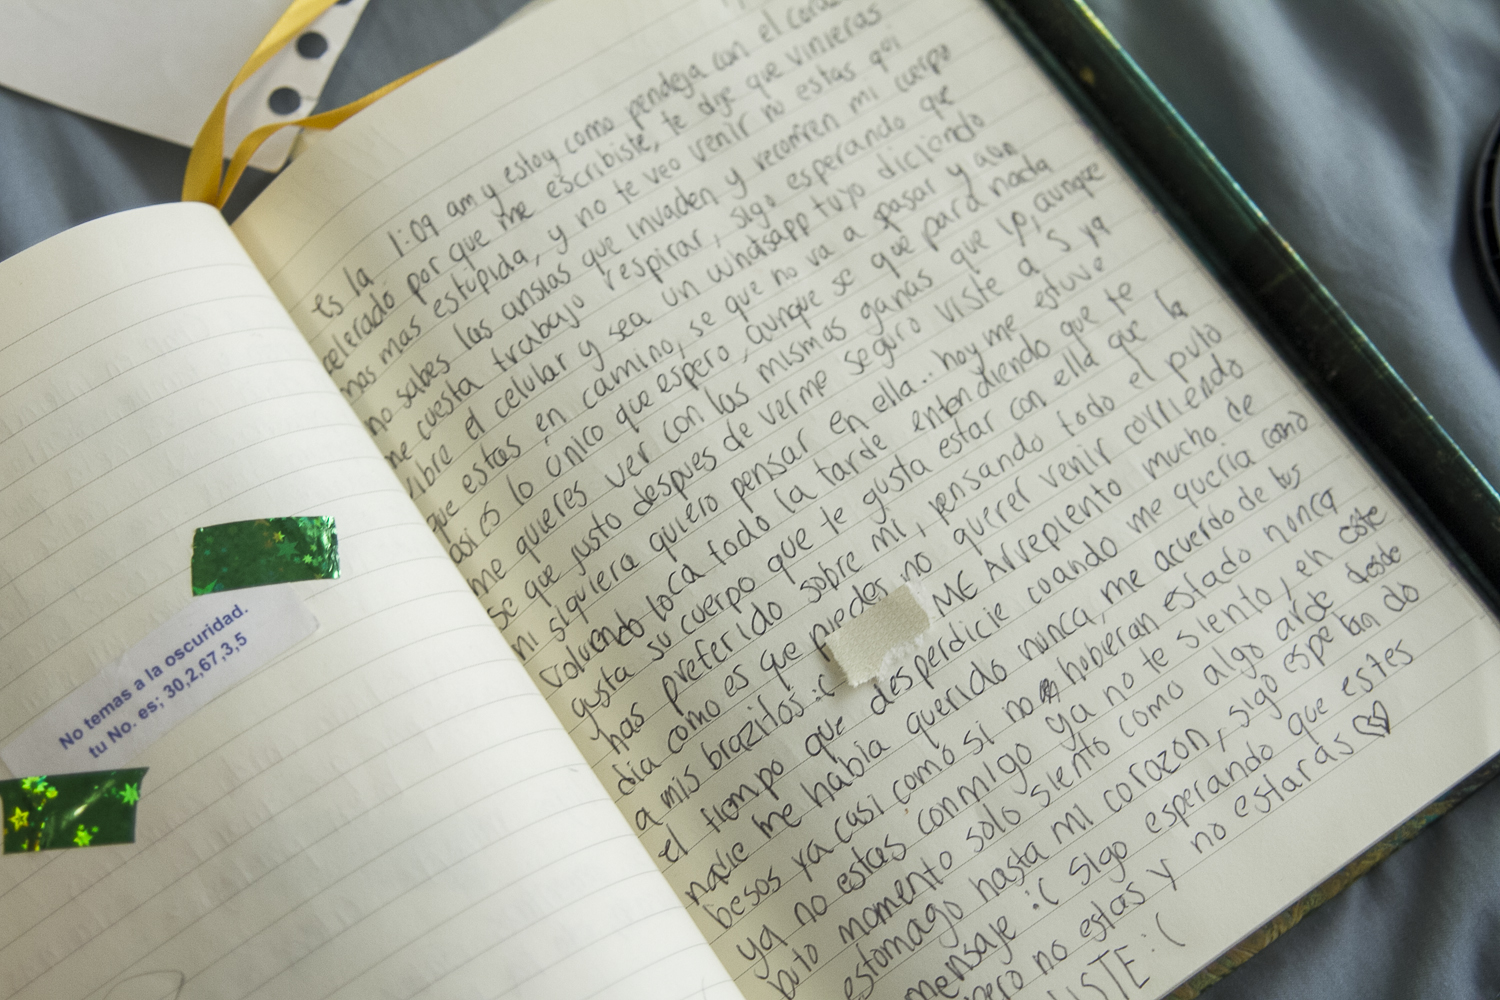 No temas a la oscuridad.
tu No. es; 30,2,67,3,5
es la 1:09 am y estoy como pendeja con el
celerado por que me escribiste, te dije que vinieras
mas estupida, y no te veo venir no estas aqi
no sabes las ansias que invaden y recorren mi cuerpo
me cuesta trabajo respirar, sigo esperando que
vibre el celular y sea un whatsapp tuyo diciendo
que estas en camino, se que no va a pasar y aun
asi es lo único que espero, aunque se que para nada
me quieres ver con las mismas ganas que yo, aunque
se que justo despues de verme seguro viste a S ya
ni siquiera quiero pensar en ella.. hoy me estuve
volviendo loca toda la tarde entendiendo que te
gusta su cuerpo que te gusta estar con ella que la
has preferido sobre mi, pensando todo el puto
dia como es que puedes no querer venir corriendo
a mis brazitos :c ME Arrepiento mucho de
el tiempo que desperdicie cuando me queria como
nadie me habia querido nunca, me acuerdo de tus
besos ya casi como si no hubieran estado nunca
ya no estas conmigo ya no te siento, en este
puto momento solo siento como algo arde desde
estomago hasta mi corazón, sigo esperando
mensaje :( sigo esperando que estes
pero no estas y no estaras
ISTE :(